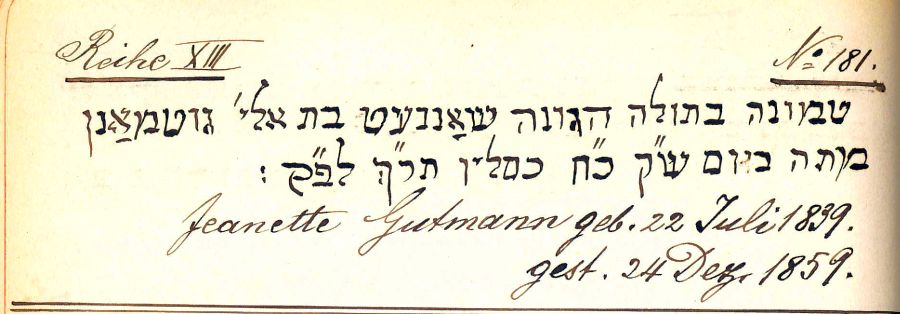 Reihe XIII No 181.
טמונה בתולה הגונה שאַננעט בת אלי' גוטמאַנן
מתה ביום ש"ק כ"ח כסליו תר"ך לפ"ק :
Jeanette Gutmann geb. 22 Juli 1839.
gest. 24 Dez. 1859.